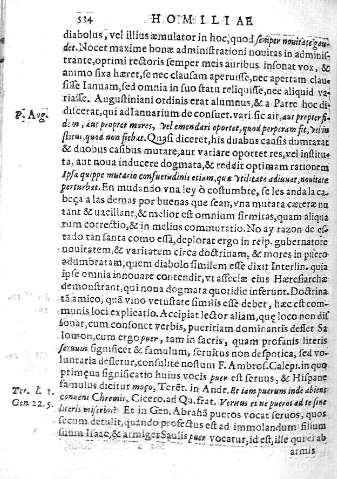 534 HOMILIAE
diabolus, vel illius æmulator in hoc, quod semper nouitate gau-
det. Nocet maxime bonæ administrationi nouitas in adminis-
trante, optimi rectoris semper meis auribus insonat vox, &
animo fixa hæret, se nec clausam aperuisse, nec apertam clau-
sisse Ianuam, sed omnia in suo statu reliquisse, nec aliquid va-
riasse. Augustiniani ordinis erat alumnus, & a Patre hoc di-
P. Aug. discerat, qui ad Ianuarium de consuet. vari. sic ait, aut propter fi-
dem, aut propter mores, vel emendari oportet, quod perperam fit, vel ins-
titui, quod non fiebat. Quasi diceret, his duabus causis dumtaxat
& duobus casibus mutare, aut variare oportet res, vel institu-
ta, aut noua inducere dogmata, & reddit optimam rationem
Ipsa quippe mutatio consuetudinis etiam, quæ vtilitate adiuuat, nouitate
perturbat. En mudando vna ley ò costumbre, se les anda la ca-
beça a las demas por buenas que sean, vna mutata cæteræ nu-
tant & vacillant, & melior est omnium firmitas, quam aliqua
rum correctio, & in melius commutatio. No ay razon de es-
tado tan santa como essa, deplorat ergo in reip. gubernatore
nouitatem, & variatem circa doctrinam, & mores in puero
adumbratam, quem diabolo similem esse dixit Interlin. quia
ipse omnia innouare contendit, vt asseclæ eius Hæresiarchæ
demonstrant, qui noua dogmata quotidie inferunt. Doctrinã
tã amico, quã vino vetustate similis esse debet, hæc est com-
munis loci explicatio. Accipiat lector aliam, quę loco non dis
sonat, cum consonet verbis, pueritiam dominantis deflet Sa
lomon, cum ergo puer, tam in sacris, quam profanis literis
seruum significet & famulum, seruitus non despotica, sed vo-
luntaria defletur, consulite nosum F. Ambros. Calep. in quo
primęua significatio huius vocis puer est seruus, & Hispane
famulus dicitur moço, Terēt. in Andr. Et iam puerum inde abiens
Ter. l. 1. conueni Chremis, Cicero. ad Qu. frat. Vereus et ne pueros ad te sine
Gen. 22. 5. literis miserim? Et in Gen. Abrahã pueros vocat seruos, quos
secum detulit, quando profectus est ad immolandum filium
suum Isaac, & armiger Saulis puer vocatur, id est, ille qui ei ab
armis